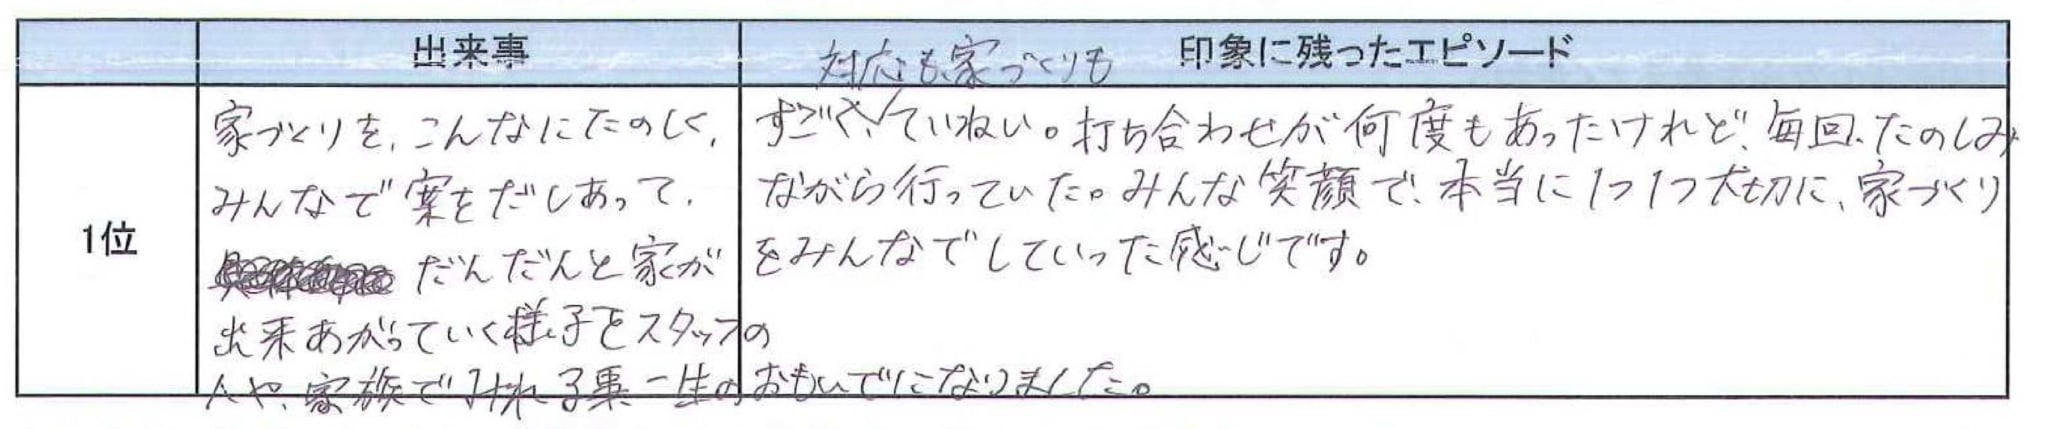 出来事
印象に残ったエピソード
1位
家づくりを、こんなにたのしく、
みんなで案をだしあって、
だんだんと家が
出来あがっていく様子をスタッフの
人や、家族でみれる事一生のおもいでになりました。
対応も家づくりも
すごく、ていねい。打ち合わせが何度もあったけれど、毎回、たのしみ
ながら行っていた。みんな笑顔で、本当に1つ1つ大切に、家づくり
をみんなでしていった感じです。